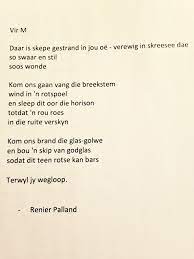 Vir M
Daar is skepe gestrand in jou oë - verewig in skreesee dae
so swaar en stil
soos wonde
Kom ons gaan vang die breekstem
wind in 'n rotspoel
en sleep dit oor die horison
totdat 'n rou roes
in die ruite verskyn
Kom ons brand die glas-golwe
en bou 'n skip van godglas
sodat dit teen rotse kan bars
Terwyl jy wegloop.
- Renier Palland